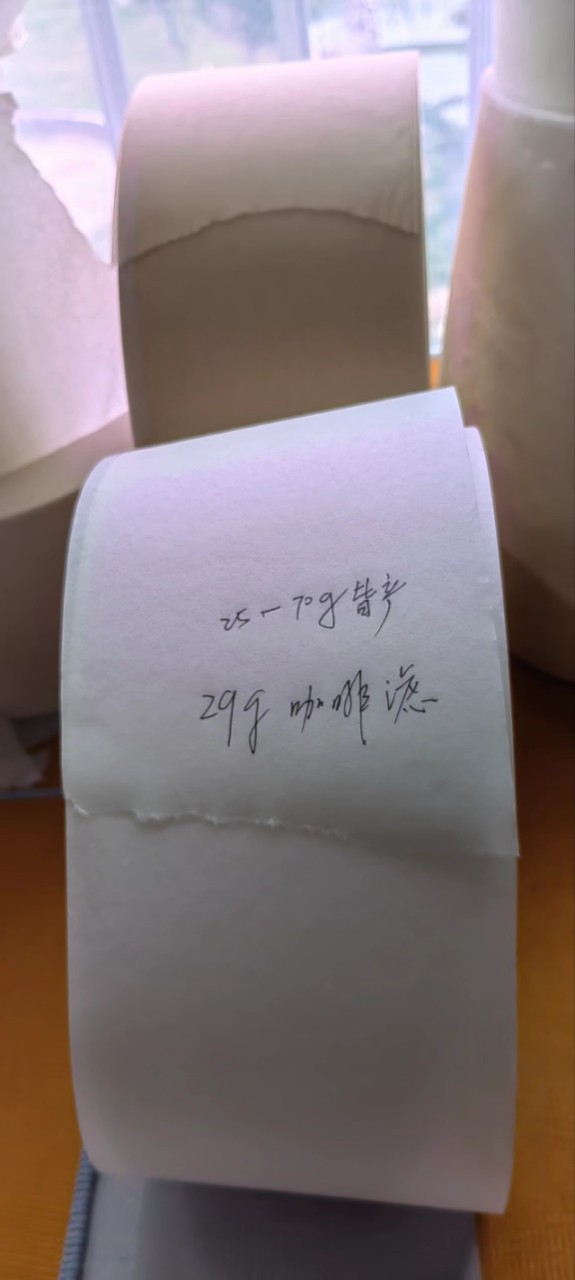 25-70g皆产
29g 咖啡滤